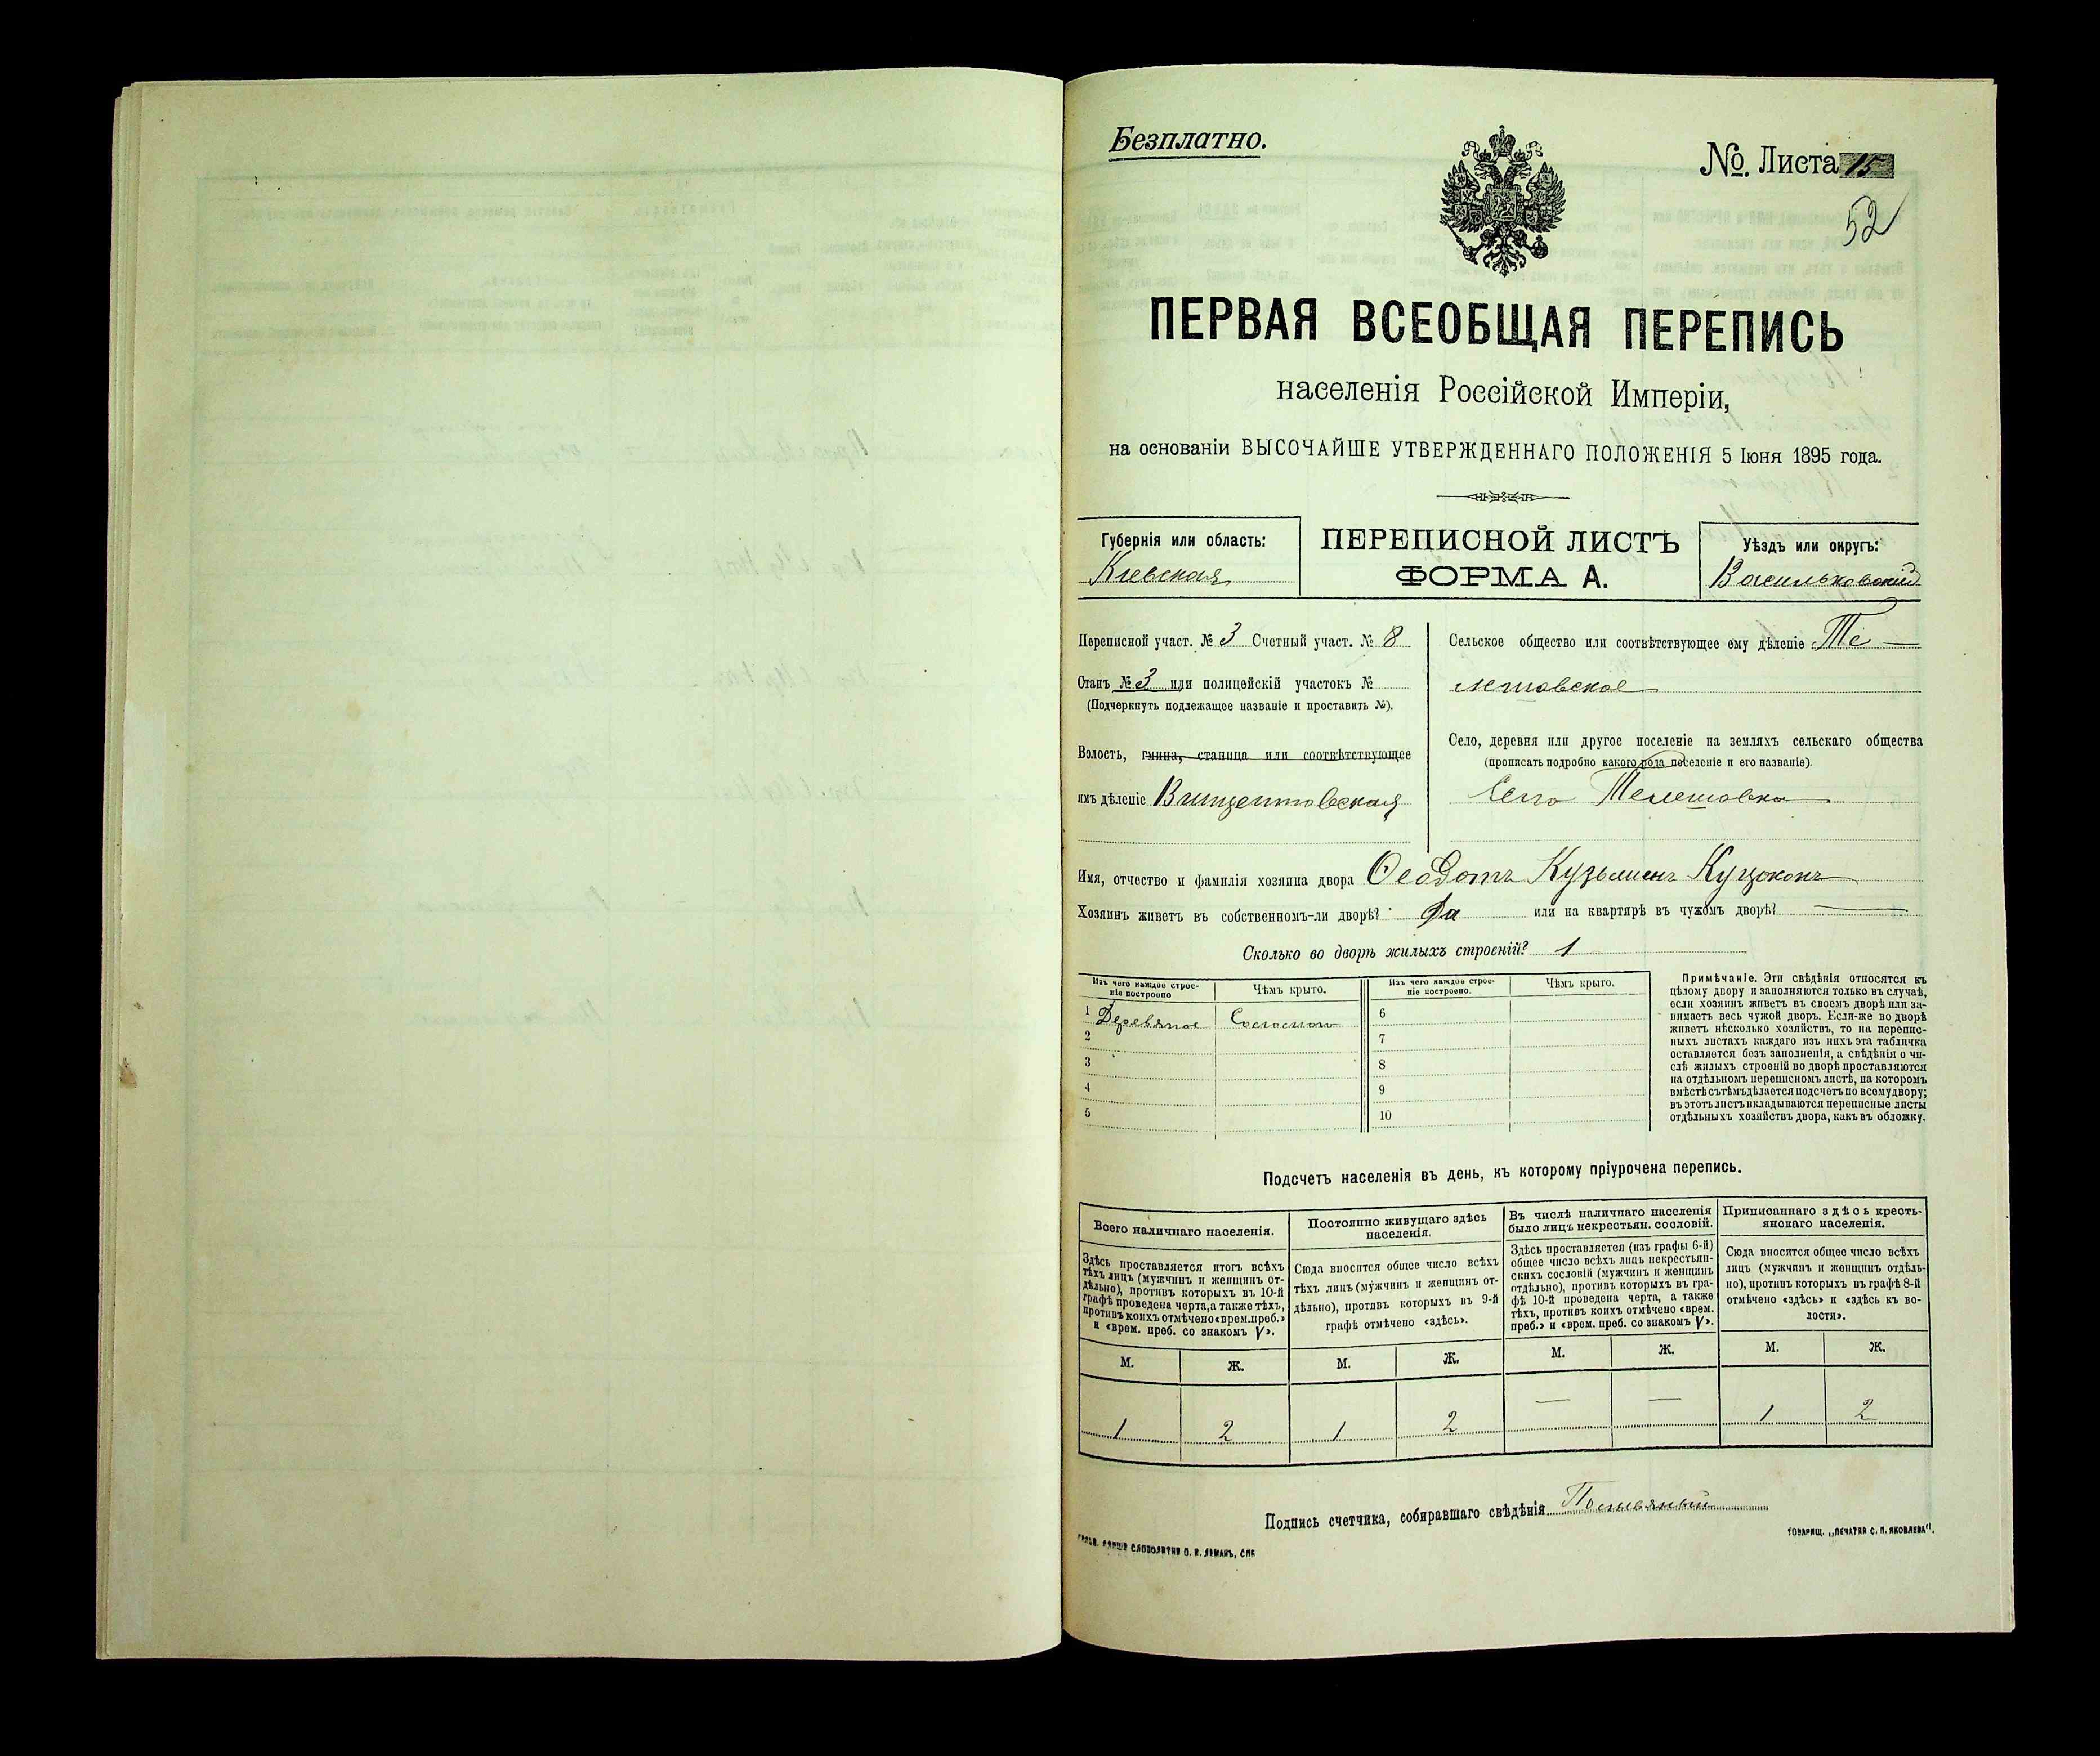 Безплатно.
№. Листа 15
52
ПЕРВАЯ ВСЕОБЩАЯ ПЕРЕПИСЬ
населенія Россійской Имперіи,
на основаніи ВЫСОЧАЙШЕ УТВЕРЖДЕННАГО ПОЛОЖЕНІЯ 5 Іюня 1895 года.
Губернія или область:
Кіевская
ПЕРЕПИСНОЙ ЛИСТЪ
ФОРМА А.
Уѣздъ или округъ:
Васильковскій
Переписной участ. № 3 Счетный участ. № 8
Станъ № 3 или полицейскій участокъ №
(Подчеркнуть подлежащее названіе и проставить №).
Волость, гмина, станица или соотвѣтствующее
имъ дѣленіе Винцентовская
Сельское общество или соотвѣтствующее ему дѣленіе Те-
лешовское
Село, деревня или другое поселеніе на земляхъ сельскаго общества
(прописать подробно какого рода поселеніе и его названіе)
Село Телешовка
Имя, отчество и фамилія хозяина двора Ѳеодотъ Кузьминъ Куцоконь
Хозяинъ живетъ въ собственномъ-ли дворѣ? Да или на квартирѣ въ чужомъ дворѣ? —
Сколько во дворѣ жилыхъ строеній? 1
Изъ чего каждое строе-
ніе построено
Чѣмъ крыто.
Изъ чего каждое строе-
ніе построено.
Чѣмъ крыто.
1 Деревяное Соломою
2
3
4
5
6
7
8
9
10
Примѣчаніе. Эти свѣдѣнія относятся къ
цѣлому двору и заполняются только въ случаѣ,
если хозяинъ живетъ въ своемъ дворѣ или за-
нимаетъ весь чужой дворъ. Если-же во дворѣ
живетъ нѣсколько хозяйствъ, то на перепис-
ныхъ листахъ каждаго изъ нихъ эта табличка
оставляется безъ заполненія, а свѣдѣнія о чи-
слѣ жилыхъ строеній во дворѣ проставляются
на отдѣльномъ переписномъ листѣ, на которомъ
вмѣстѣ съ тѣмъ дѣлается подсчетъ по всему двору;
въ этотъ листъ вкладываются переписные листы
отдѣльныхъ хозяйствъ двора, какъ въ обложку.
Подсчетъ населенія въ день, къ которому пріурочена перепись.
Всего наличнаго населенія.
Здѣсь проставляется итогъ всѣхъ
тѣхъ лицъ (мужчинъ и женщинъ от-
дѣльно), противъ которыхъ въ 10-й
графѣ проведена черта, а также тѣхъ,
противъ коихъ отмѣчено «врем. преб.»
и «врем. преб. со знакомъ V».
Постоянно живущаго здѣсь
населенія.
Сюда вносится общее число всѣхъ
тѣхъ лицъ (мужчинъ и женщинъ от-
дѣльно), противъ которыхъ въ 9-й
графѣ отмѣчено «здѣсь».
Въ числѣ наличнаго населенія
было лицъ некрестьян. сословій.
Здѣсь проставляется (изъ графы 6-й)
общее число всѣхъ лицъ некрестьян-
скихъ сословій (мужчинъ и женщинъ
отдѣльно), противъ которыхъ въ гра-
фѣ 10-й проведена черта, а также
тѣхъ, противъ коихъ отмѣчено «врем.
преб.» и «врем. преб. со знакомъ V».
Приписаннаго здѣсь кресть-
янскаго населенія.
Сюда вносится общее число всѣхъ
лицъ (мужчинъ и женщинъ отдѣль-
но), противъ которыхъ въ графѣ 8-й
отмѣчено «здѣсь» и «здѣсь къ во-
лости».
М. Ж. М. Ж. М. Ж. М. Ж.
1 2 1 2 — — 1 2
Подпись счетчика, собиравшаго свѣдѣнія
ТОВАРИЩ. „ПЕЧАТНЯ С. П. ЯКОВЛЕВА".
СЛОВОЛИТНЯ О. И. ЛЕМАНЪ, СПБ